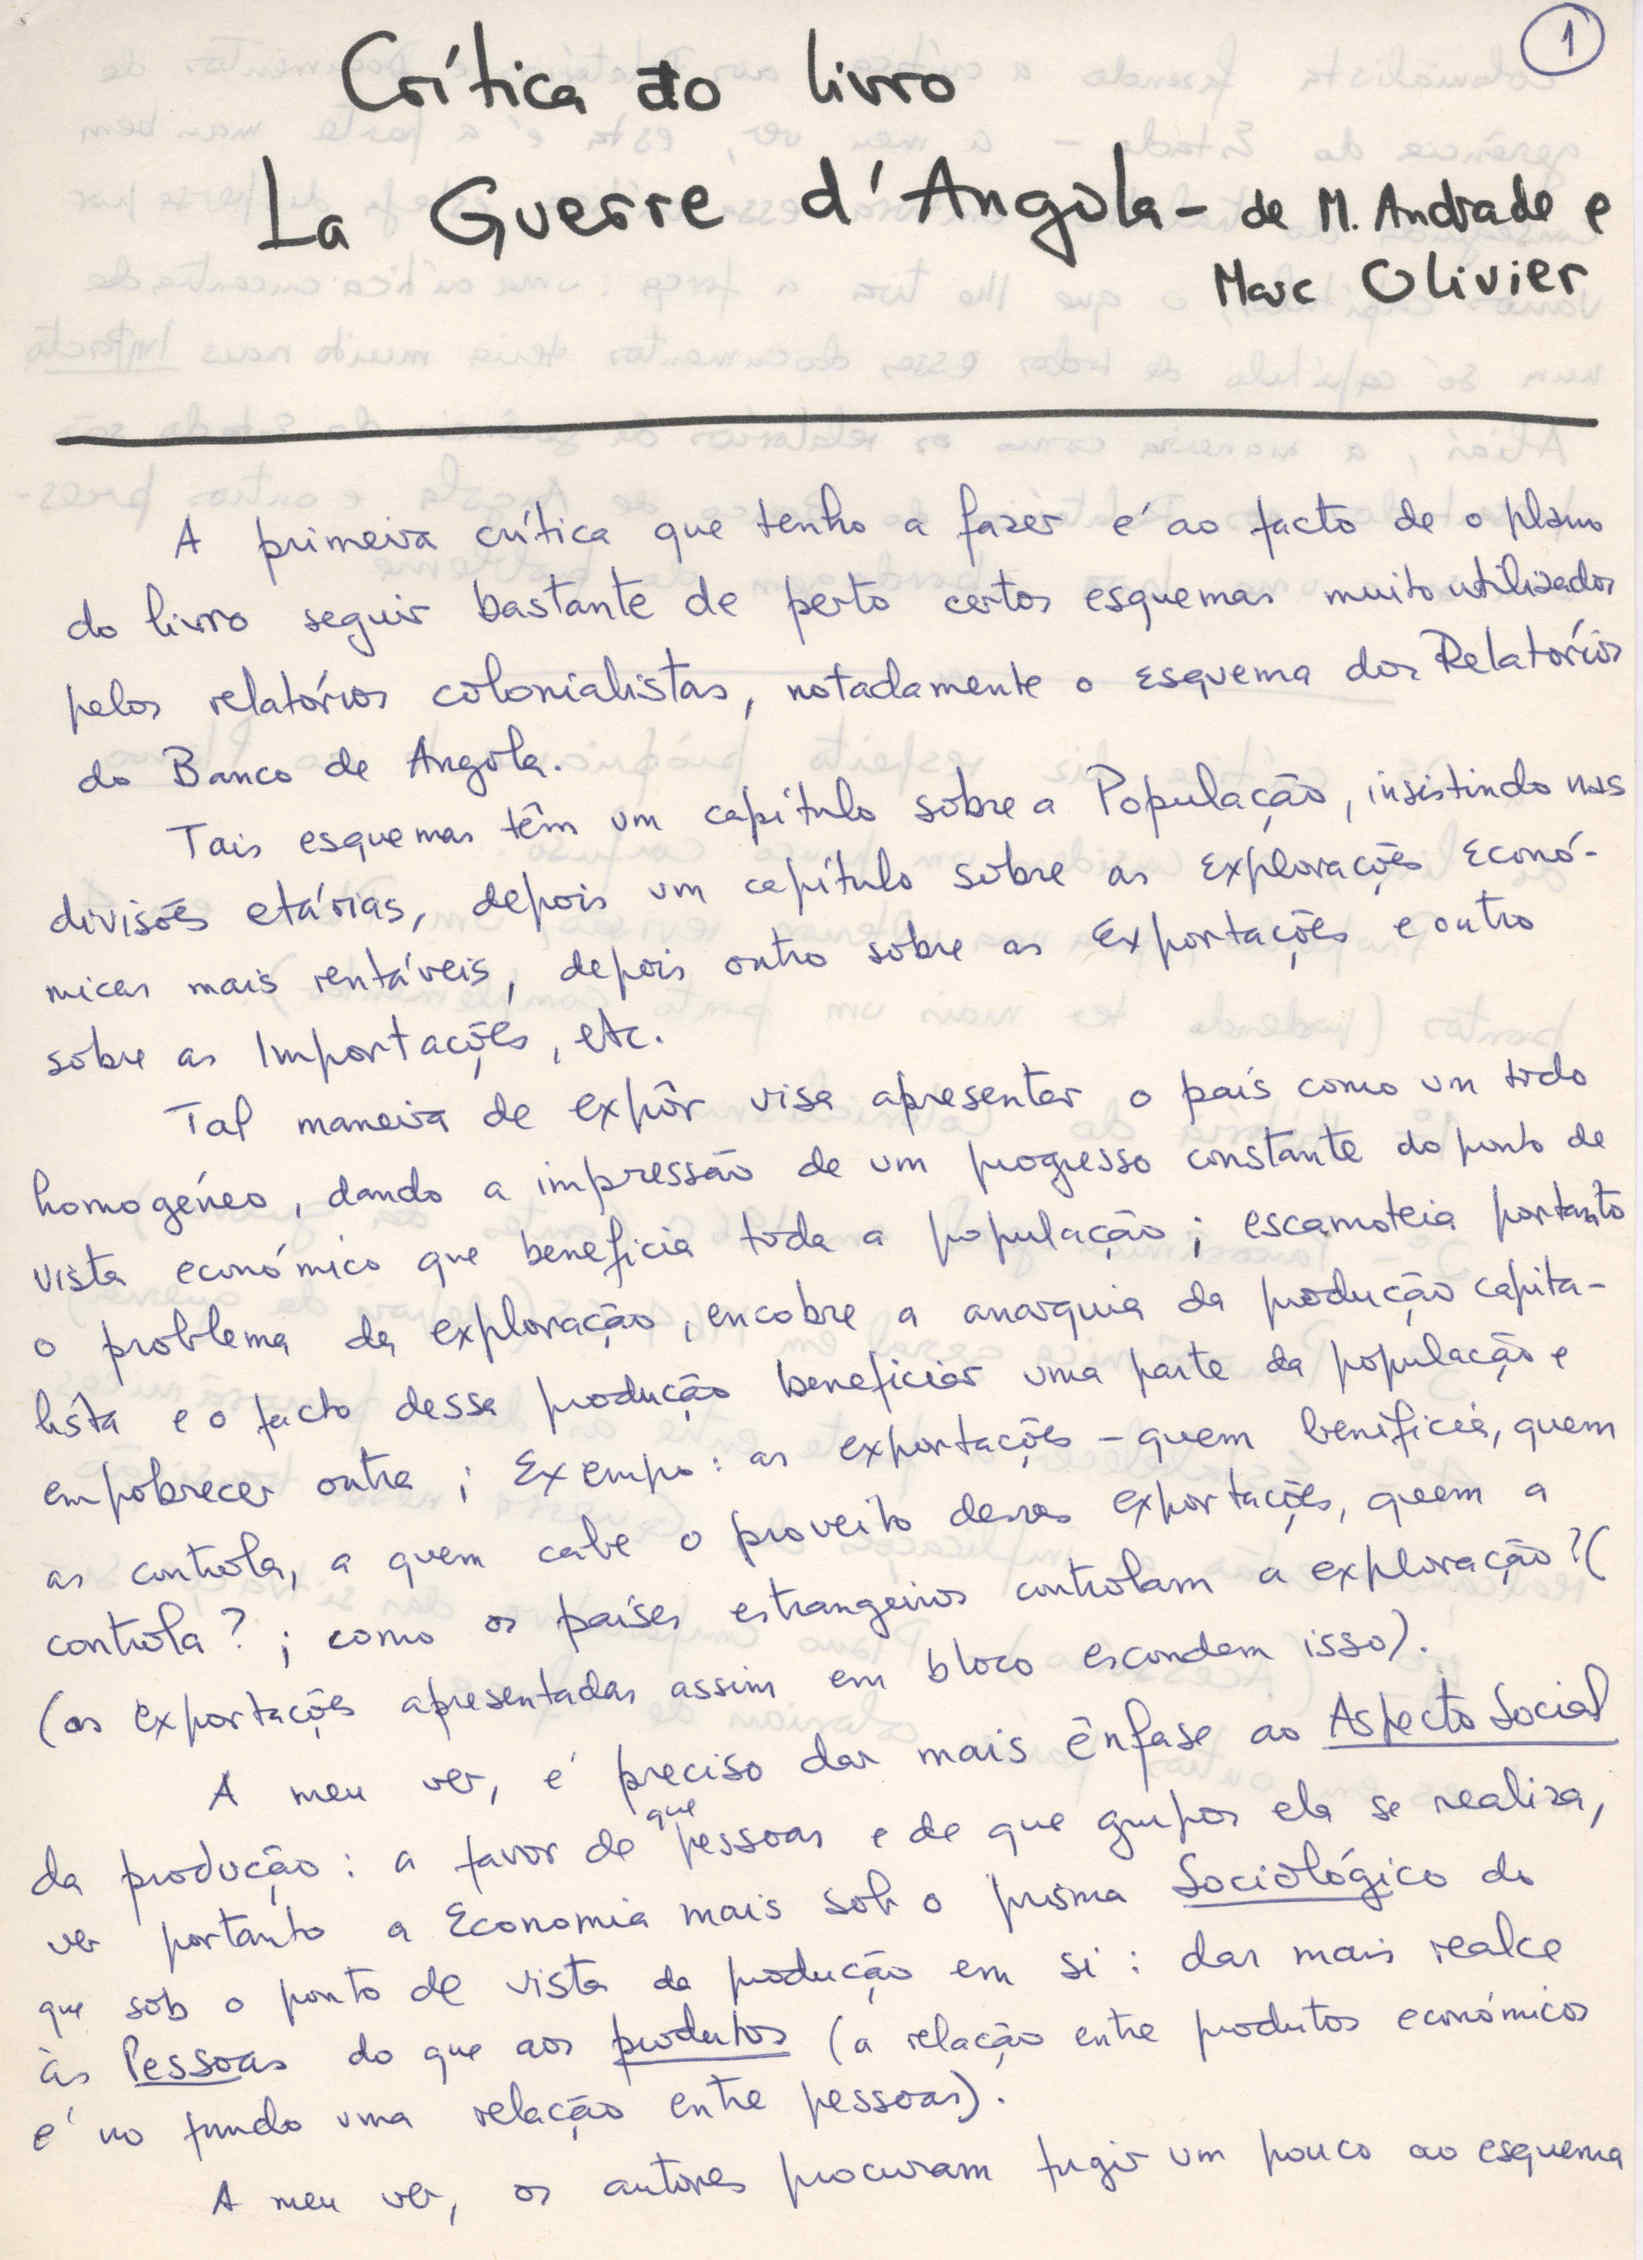 1
Crítica ao livro
La Guerre d'Angola - de M. Andrade e
Marc Olivier
A primeira crítica que tenho a fazer é ao facto de o plano
do livro seguir bastante de perto certos esquemas muito utilizados
pelos relatórios colonialistas, notadamente o esquema dos Relatórios
do Banco de Angola.
Tais esquemas têm um capítulo sobre a População, insistindo nas
divisões etárias, depois um capítulo sobre as Explorações Econó-
micas mais rentáveis, depois outro sobre as Exportações e outro
sobre as Importações, etc.
Tal maneira de expôr visa apresentar o país como um todo
homogéneo, dando a impressão de um progresso constante do ponto de
vista económico que beneficia toda a população; escamoteia portanto
o problema da exploração, encobre a anarquia da produção capita-
lista e o facto dessa produção beneficiar uma parte da população e
empobrecer outra; Exempo: as exportações - quem benificia, quem
as controla, a quem cabe o proveito dessas exportações, quem a
controla?; como os países estrangeiros controlam a exploração? (
(as exportações apresentadas assim em bloco escondem isso).
A meu ver, é preciso dar mais ênfase ao Aspecto Social
da produção: a favor de que pessoas e de que grupos ela se realiza,
ver portanto a Economia mais sob o prisma Sociológico do
que sob o ponto de vista da produção em si: dar mais realce
às Pessoas do que aos produtos (a relação entre produtos económicos
é no fundo uma relação entre pessoas).
A meu ver, os autores procuram fugir um pouco ao esquema